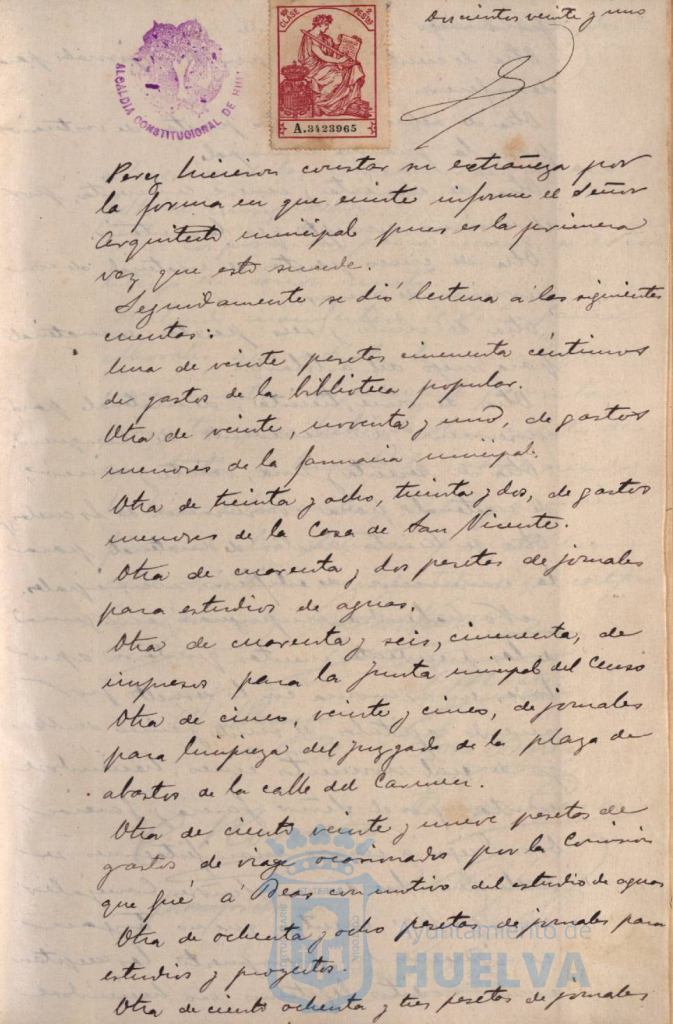 Doscientos veinte y uno
ALCALDIA CONSTITUCIONAL DE HUEL
CLASE
2 PESETAS
A.3423965
Perez hicieron constar su extrañeza por
la forma en que emite informe el Señor
Arquitecto municipal pues es la primera
vez que esto sucede.
Seguidamente se dió lectura á las siguientes
cuentas:
Una de veinte pesetas cincuenta céntimos
de gastos de la biblioteca popular.
Otra de veinte, noventa y uno, de gastos
menores de la farmacia municipal.
Otra de treinta y ocho, treinta y dos, de gastos
menores de la Casa de San Vicente.
Otra de cuarenta y dos pesetas de jornales
para estudios de aguas.
Otra de cuarenta y seis, cincuenta, de
impresos para la Junta municipal del Censo
Otra de cinco, veinte y cinco, de jornales
para limpieza del juzgado de la plaza de
abastos de la calle del Carmen.
Otra de ciento veinte y nueve pesetas de
gastos de viage ocasionados por la Comisión
que fué á Beas con motivo del estudio de aguas
Otra de ochenta y ocho pesetas de jornales para
estudios y proyectos.
Otra de ciento ochenta y tres pesetas de jornales
Ayuntamiento de
HUELVA